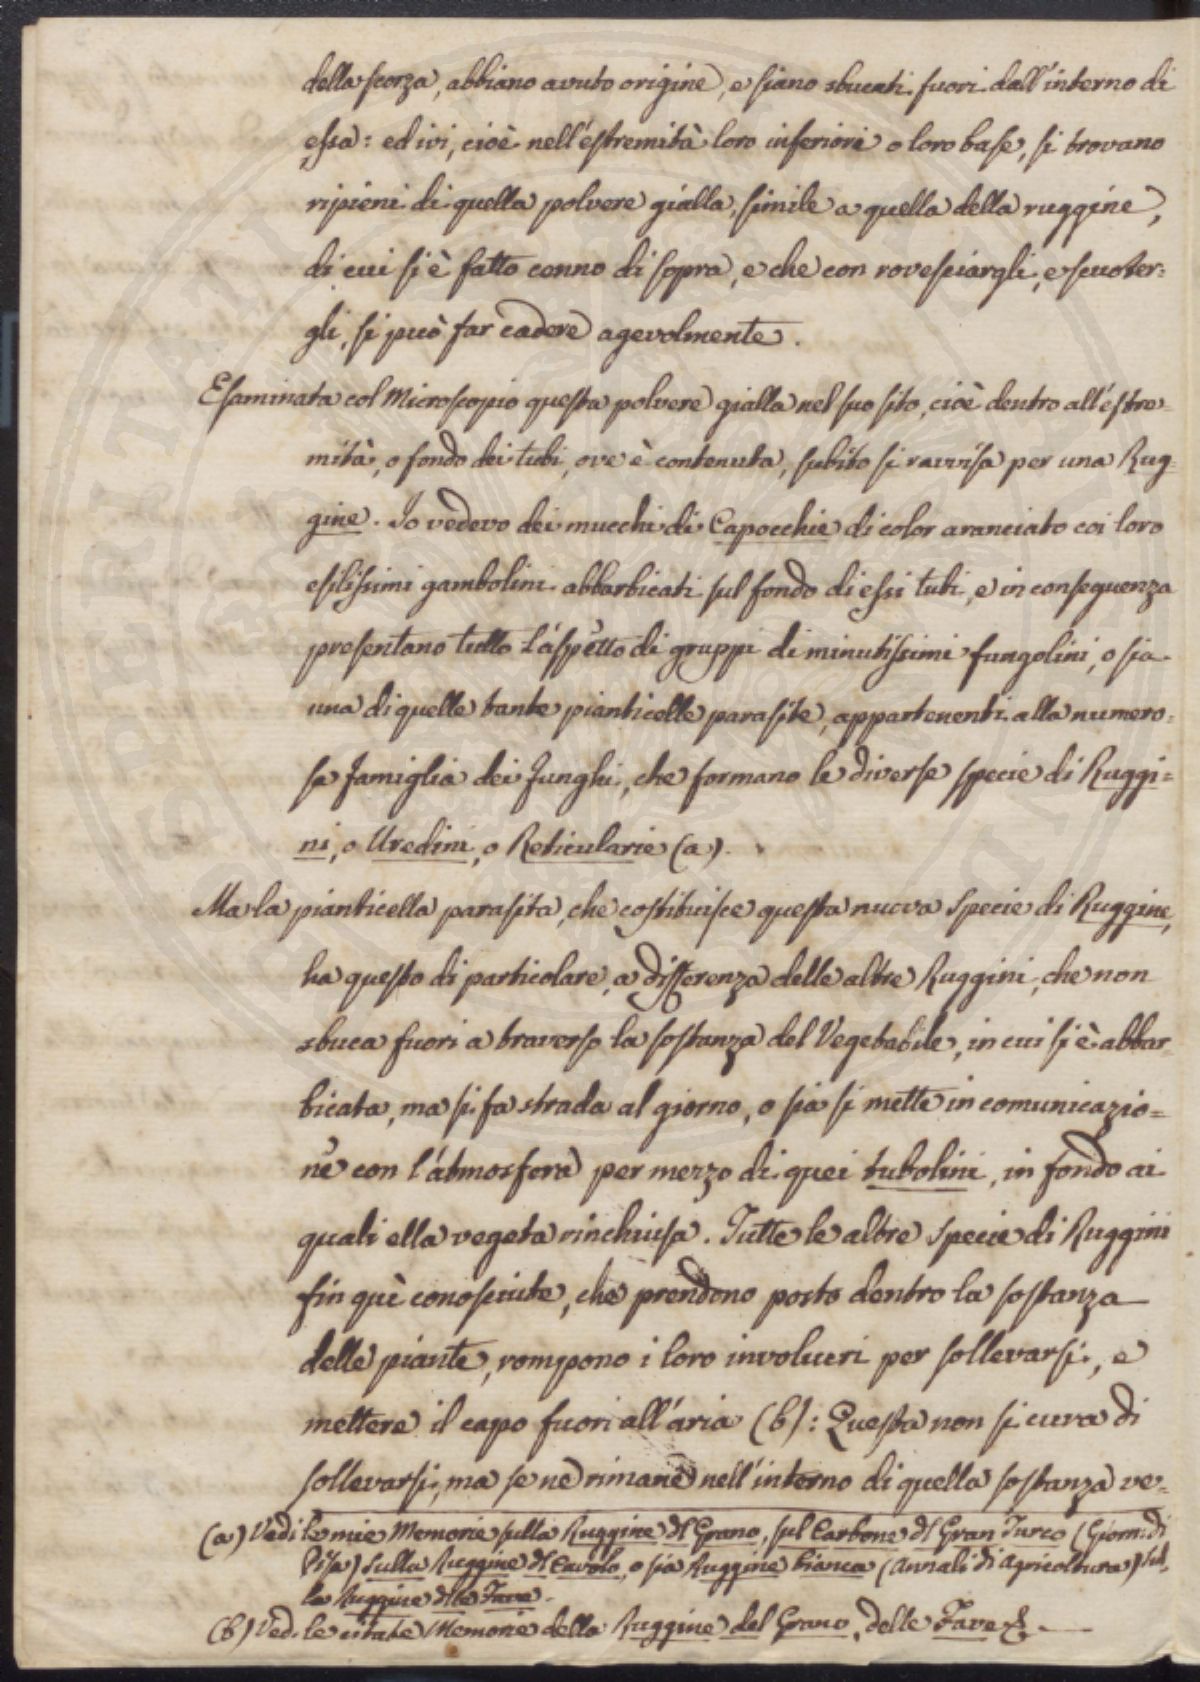 della scorza, abbiano avuto origine, e siano sbucati fuori dall'interno di
essa: ed ivi, cioè nell'estremità loro inferiori o loro base, si trovano
ripieni di quella polvere gialla, simile a quella della ruggine,
di cui si è fatto cenno di sopra, e che con rovesciargli, e scuoter=
gli, si può far cadere agevolmente.
Esaminata col Microscopio questa polvere gialla nel suo sito, cioè dentro all'estre=
mità, o fondo dei tubi, ove è contenuta, subito si ravvisa per una Rug=
gine. Io vedevo dei mucchi di Capocchie di color aranciato coi loro
esilissimi gambolini abbarbicati sul fondo di essi tubi, e in conseguenza
presentano tutto l'aspetto di gruppi di minutissimi fungolini, o sia
una di quelle tante pianticelle parasite, appartenenti alla numero=
sa famiglia dei Funghi, che formano le diverse specie di Ruggi=
ni, o Uredini, o Reticularie (a).
Ma la pianticella parasita, che costituisce questa nuova specie di Ruggine,
ha questo di particolare, a differenza delle altre Ruggini, che non
sbuca fuori a traverso la sostanza del Vegetabile, in cui si è abbar=
bicata, ma si fa strada al giorno, o sia si mette in comunicazio=
ne con l'atmosfera per mezzo di quei tubolini, in fondo ai
quali ella vegeta rinchiusa. Tutte le altre specie di Ruggini
fin quì conosciute, che prendono posto dentro la sostanza
delle piante, rompono i loro involucri per sollevarsi, e
mettere il capo fuori all'aria (b): Questa non si cura di
sollevarsi, ma se ne rimane nell'interno di quella sostanza ve=
(a) Vedi le mie Memorie sulla Ruggine del Grano, sul Carbone del Gran Turco (Giorn. di
Pisa) sulla Ruggine del Cavolo, o sia Ruggine bianca (Annali di Agricoltura) sul=
la Ruggine delle Fave.
(b) Ved. le citate Memorie della Ruggine del Grano, delle Fave &.